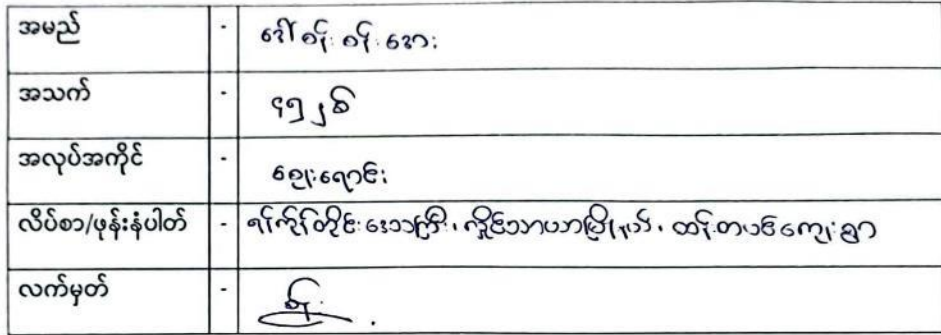 အမည် - ဒေါ်စန်းစန်းအေး
အသက် - ၄၅ နှစ်
အလုပ်အကိုင် - ဈေးရောင်း
လိပ်စာ/ဖုန်းနံပါတ် - ရန်ကုန်တိုင်းဒေသကြီး၊ လှိုင်သာယာမြို့နယ်၊ ထန်းတပင်ကျေးရွာ
လက်မှတ် -